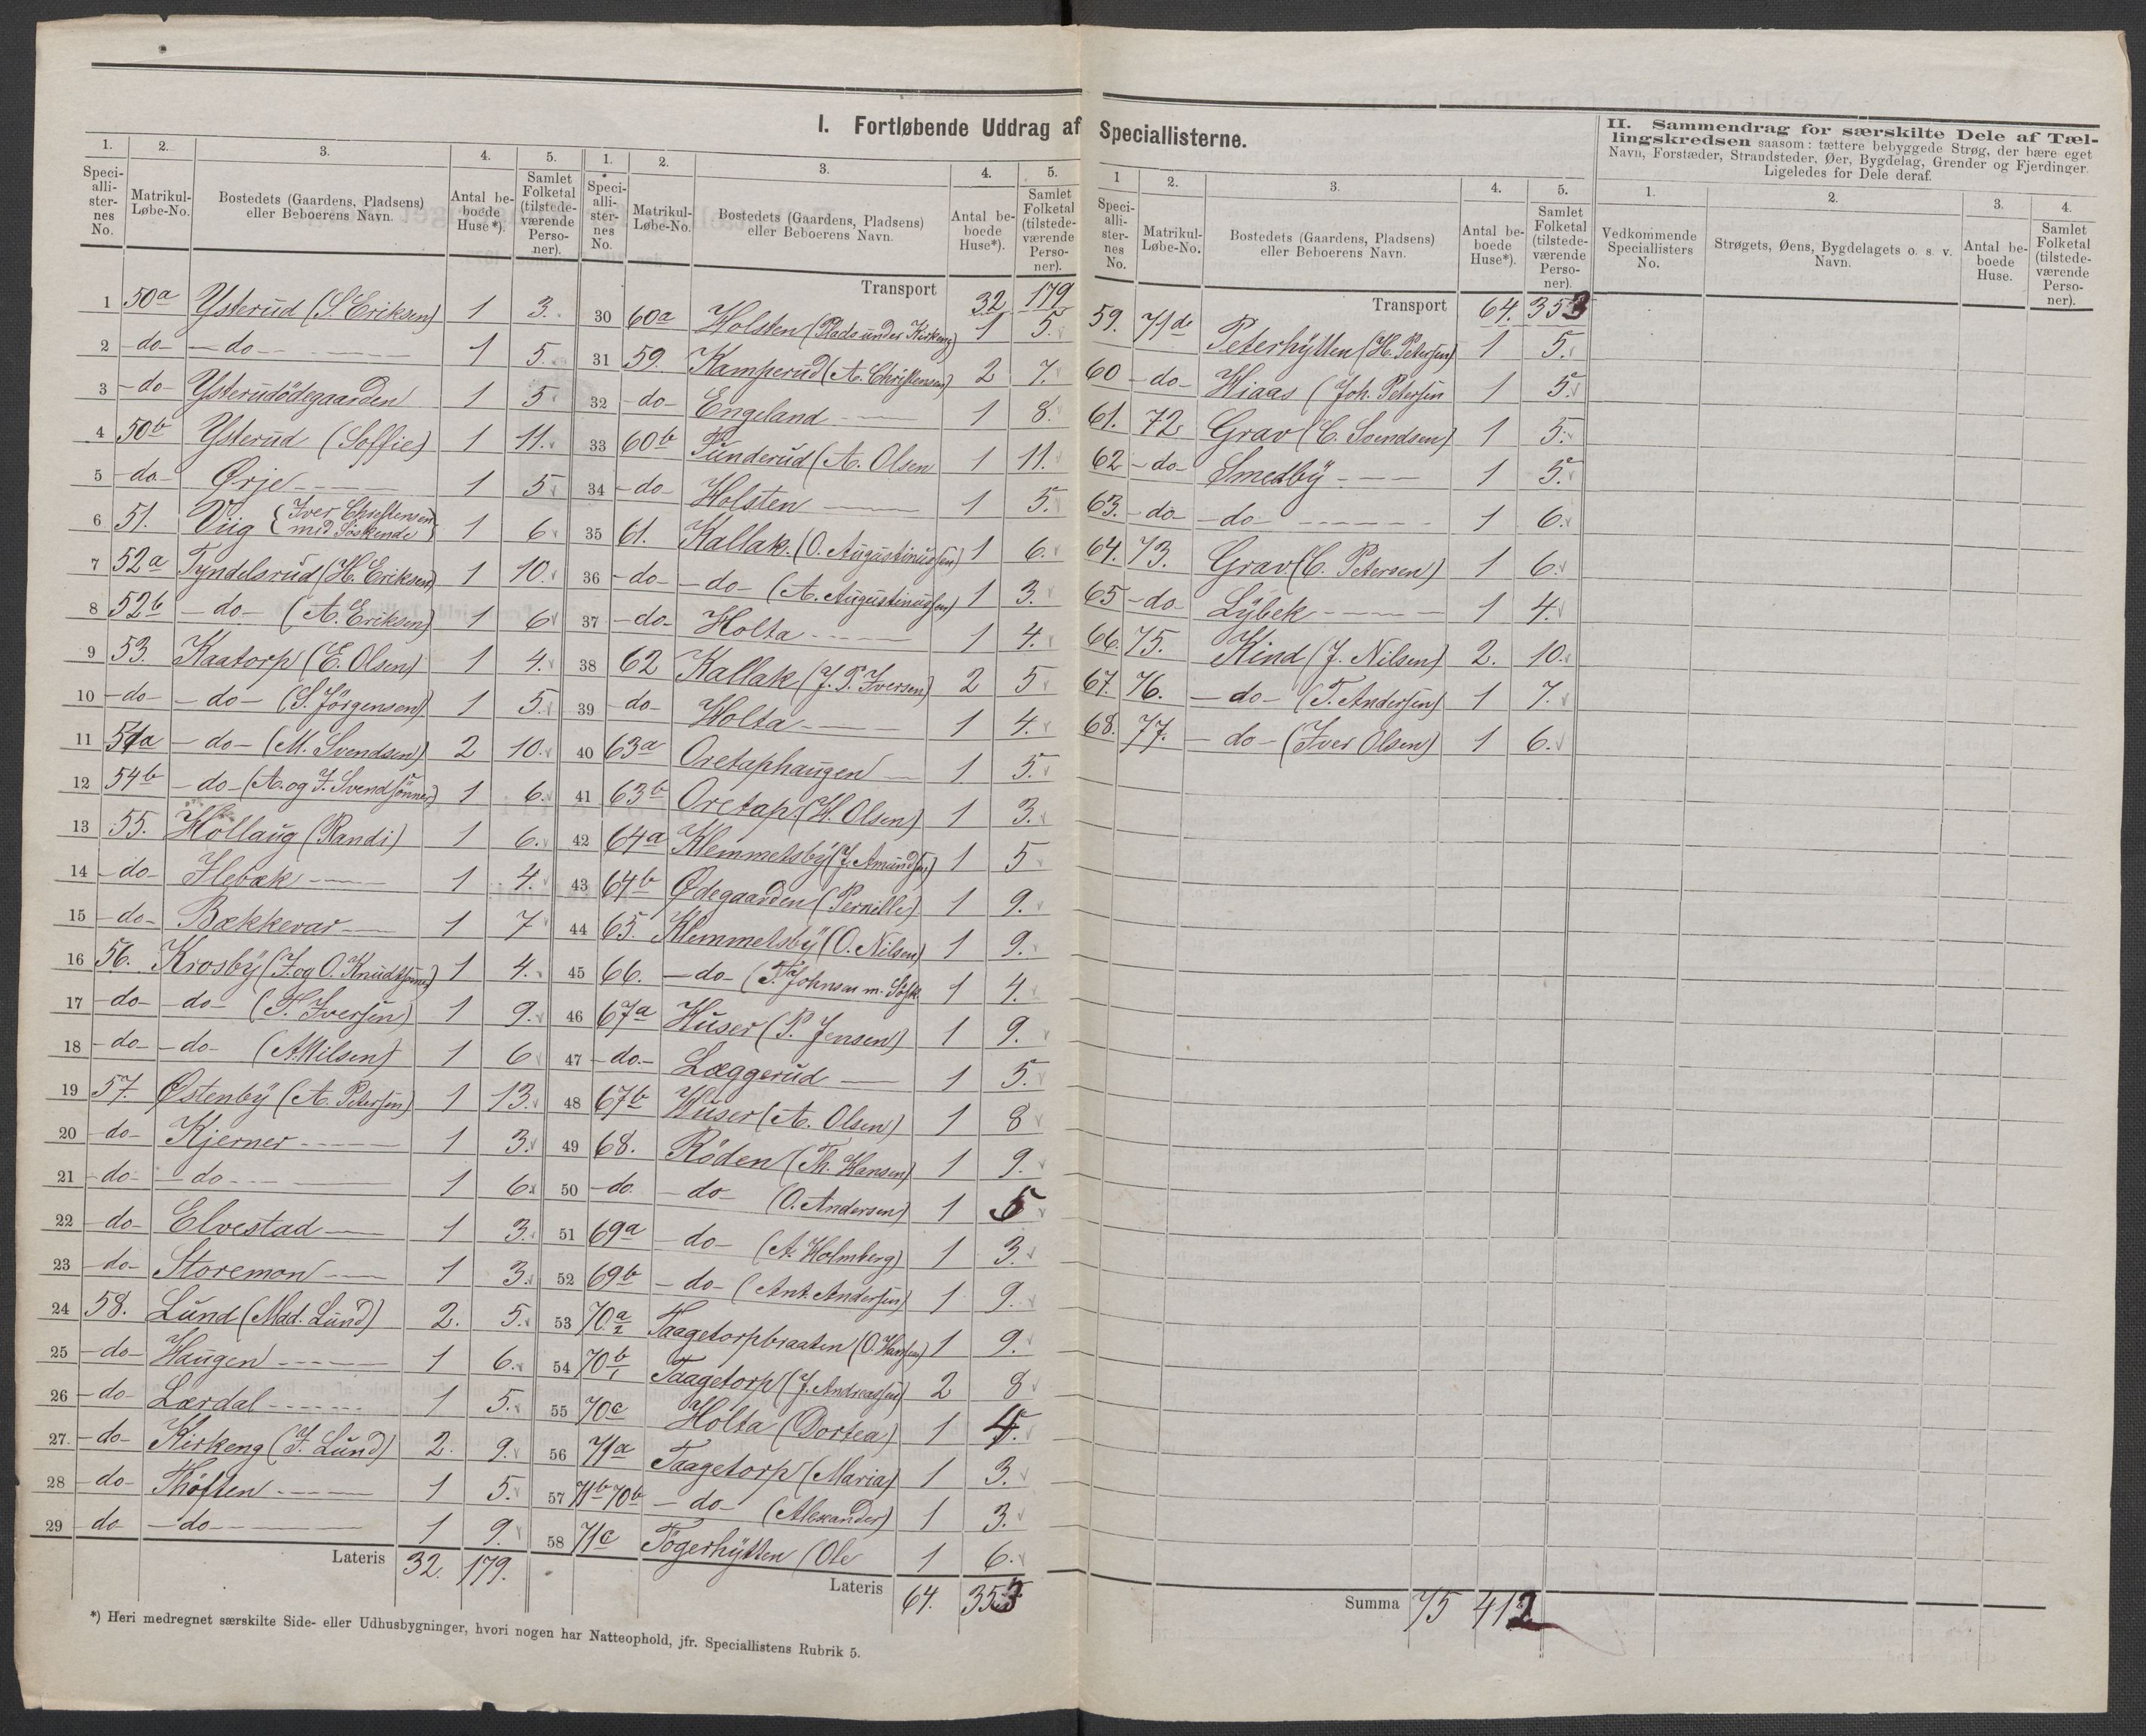 I. Fortløbende Uddrag af Speciallisterne.
1. 2. 3. 4. 5.
Speciallisternes No. Matrikul-Løbe-No. Bostedets (Gaardens, Pladsens) eller Beboerens Navn. Antal beboede Huse*). Samlet Folketal (tilstedeværende Personer).
1 50a Ysterud (S. Eriksen) 1 3.
2 -do- -do- 1 5.
3 -do- Ysterudödegaarden 1 5
4 50b Ysterud (Soffie) 1 11.
5 -do- Ørje 1 5
6 51. Viig {Iver Christensen med Söskende} 1 6
7 52a Tyndelsrud (H. Eriksen) 1 10.
8 52b -do- (A. Eriksen) 1 6
9 53. Kaatorp (E. Olsen) 1 4.
10 -do- -do- (S. Jörgensen) 1 5.
11 54a -do- (M. Svendsen) 2 10.
12 54b -do- (A. og J. Svendsönner) 1 6.
13 55. Hollaug (Randi) 1 6.
14 -do- Ilebæk 1 4.
15 -do- Bækkevar 1 7
16 56. Krosby (J. og O. Knudsönner) 1 4.
17 -do- -do- (T. Iversen) 1 9.
18 -do- -do- (A. Nilsen) 1 6
19 57. Østenby (A. Petersen) 1 13.
20 -do- Kjerner 1 3.
21 -do- -do- 1 6
22 -do- Elvestad 1 3.
23 -do- Storemon 1 3.
24 58. Lund (Mad. Lund) 2. 5.
25 -do- Haugen 1 6.
26 -do- Lærdal 1 5.
27. -do- Kirkeng (J. Lund) 2. 9.
28 -do- Thöften 1 5.
29 -do- -do- 1 9.
Lateris 32. 179.
*) Heri medregnet særskilte Side- eller Udhusbygninger, hvori nogen har Natteophold, jfr. Speciallistens Rubrik 5.
1. 2. 3. 4. 5.
Speciallisternes No. Matrikul-Løbe-No. Bostedets (Gaardens, Pladsens) eller Beboerens Navn. Antal beboede Huse*). Samlet Folketal (tilstedeværende Personer).
Transport 32 179
30 60a Holsten (Plads under Kirkeng) 1 5.
31 59. Kamperud (A. Christensen) 2 7.
32 -do- Engeland 1 8.
33 60b Tunderud (A. Olsen 1 11.
34 -do- Holsten 1 5.
35 61. Kallak. (O. Augustinussen) 1 6.
36 -do- -do- (A. Augustinussen) 1 3.
37 -do- Holta 1 4.
38 62 Kallak (J. P. Iversen) 2 5
39 -do- Holta 1 4.
40 63a Oretaphaugen 1 5.
41 63b Oretap. (H. Olsen) 1 3.
42 64a Klemmetsby (J. Amundsen) 1 5
43 64b Ødegaarden (Pernille) 1 9.
44 65. Klemmetsby (O. Nilsen) 1 9.
45 66. -do- (T. Johnsen m. Söfk. 1 4.
46 67a Huser (P. Jensen) 1 9.
47 -do- Læggerud 1 5.
48 67b Huser (A. Olsen) 1 8
49 68. Röden (Th. Hansen) 1 9.
50 -do- -do- (O. Andersen) 1 5
51 69a -do- (A. Holmberg) 1 3.
52 69b -do- (Ant. Andersen) 1 9.
53 70 a/2 Taagetorpbraaten (O. Hansen) 1 9.
54 70 b/1 Taagetorp (J. Andreassen) 2 8
55 70c Holta (Dortea) 1 4.
56 71a Taagetorp (Maria) 1 3.
57 71b 70b -do- (Alexander) 1 3.
58 71c Tögerhytten (Ole 1 6.
Lateris 64. 353
1 2. 3. 4. 5.
Speciallisternes No. Matrikul-Løbe-No. Bostedets (Gaardens, Pladsens) eller Beboerens Navn. Antal beboede Huse*). Samlet Folketal (tilstedeværende Personer).
Transport 64. 353
59. 71de Peterhytten (H. Petersen) 1 5.
60 -do- Hiaas (Joh. Petersen 1 5.
61. 72 Grav (C. Svendsen) 1 5.
62 -do- Smedby 1 5.
63. -do- -do- 1 6.
64. 73. Grav. (C. Petersen) 1 6.
65 -do- Lybek 1 4.
66. 75. Kind (J. Nilsen) 2. 10.
67. 76. -do- (T. Andersen) 1 7.
68. 77. -do- (Iver Olsen) 1 6.
Summa 75 412
II. Sammendrag for særskilte Dele af Tællingskredsen saasom: tættere bebyggede Strøg, der bære eget Navn, Forstæder, Strandsteder, Øer, Bygdelag, Grender og Fjerdinger. Ligeledes for Dele deraf.
1. 2. 3. 4.
Vedkommende Speciallisters No. Strøgets, Øens, Bygdelagets o. s. v. Navn. Antal beboede Huse. Samlet Folketal (tilstedeværende Personer).